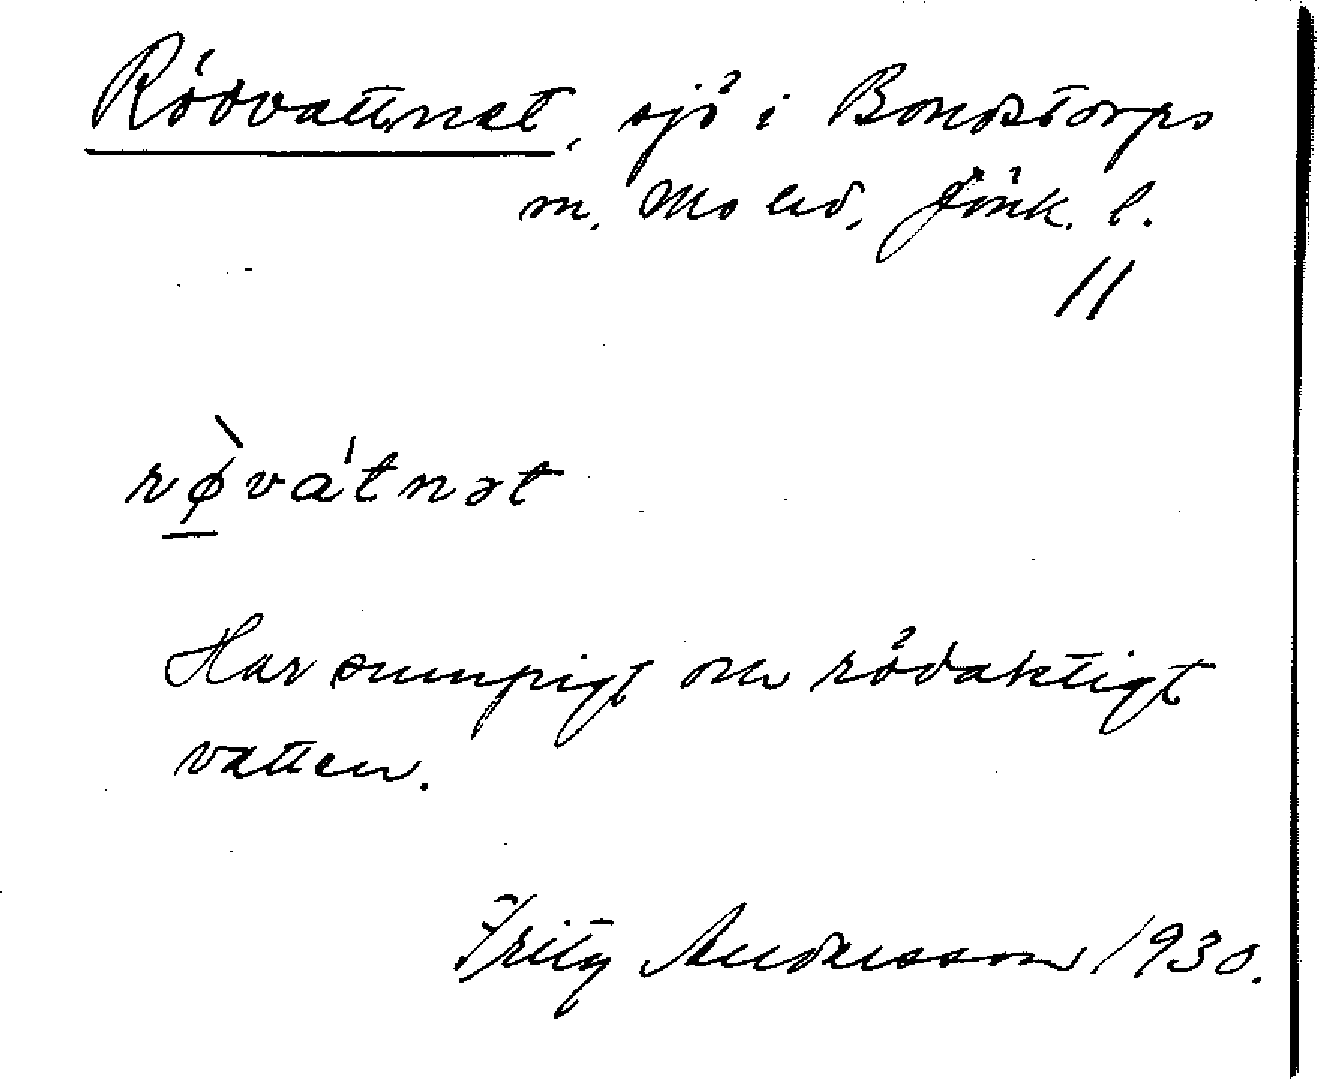 Rödvattnet, sjö i Bondstorps
m. Mo hd, Jönk. l.
11
rø̀vátnət
Har sumpigt och rödaktigt
vatten.
Fritz Andersson 1930.